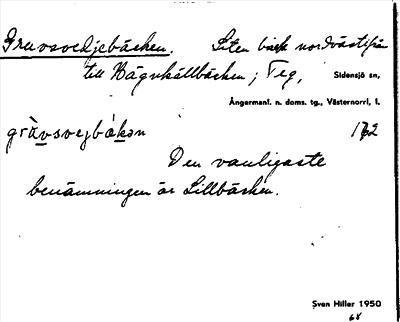 Gravsvedjebäcken. Liten bäck nordväst ifrån
till Hägnkällbäcken; Teg, Sidensjö sn,
Ångermanl. n. doms. tg., Västernorrl. l.
gràvsvejbäkən 172
Den vanligaste
benämningen är Lillbäcken.
Sven Hiller 1950
68